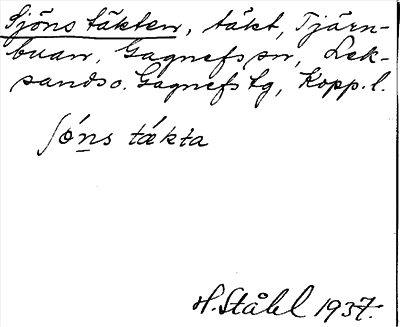 Sjöns täkten, täkt, Tjärn-
buan, Gagnefs sn, Lek-
sands o. Gagnefs tg, Kopp. l.
ʃó̱ns tǽkta
H. Ståhl 1937.